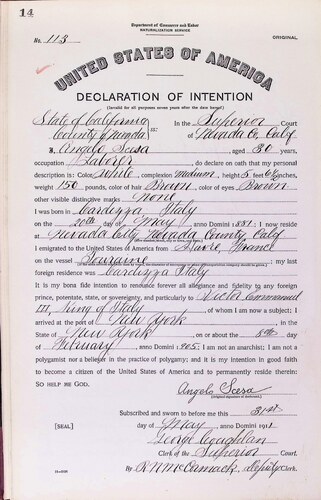 14
Department of Commerce and Labor
NATURALIZATION SERVICE
No. 113
ORIGINAL
UNITED STATES OF AMERICA
DECLARATION OF INTENTION
(Invalid for all purposes seven years after the date hereof)
State of California
County of Nevada ss:
In the Superior Court
of Nevada Co. Calif
I, Angelo Scesa, aged 30 years,
occupation Laborer, do declare on oath that my personal
description is: Color white, complexion medium, height 5 feet 6 inches,
weight 150 pounds, color of hair Brown, color of eyes Brown
other visible distinctive marks none
I was born in Cardezza Italy
on the 20th day of May, anno Domini 1881; I now reside
at Nevada City, Nevada County Calif
I emigrated to the United States of America from Havre, France
on the vessel Touraine; my last
foreign residence was Cardezza Italy
It is my bona fide intention to renounce forever all allegiance and fidelity to any foreign
prince, potentate, state, or sovereignty, and particularly to Victor Emmanuel
III, King of Italy, of whom I am now a subject; I
arrived at the port of New York, in the
State of New York on or about the day
of February, anno Domini 1905; I am not an anarchist; I am not a
polygamist nor a believer in the practice of polygamy; and it is my intention in good faith
to become a citizen of the United States of America and to permanently reside therein:
SO HELP ME GOD.
Angelo Scesa
(Original signature of declarant.)
Subscribed and sworn to before me this 31st
[SEAL] day of May, anno Domini 1911
George Coughlan
Clerk of the Superior Court.
By R.N. McCormack, Deputy Clerk.